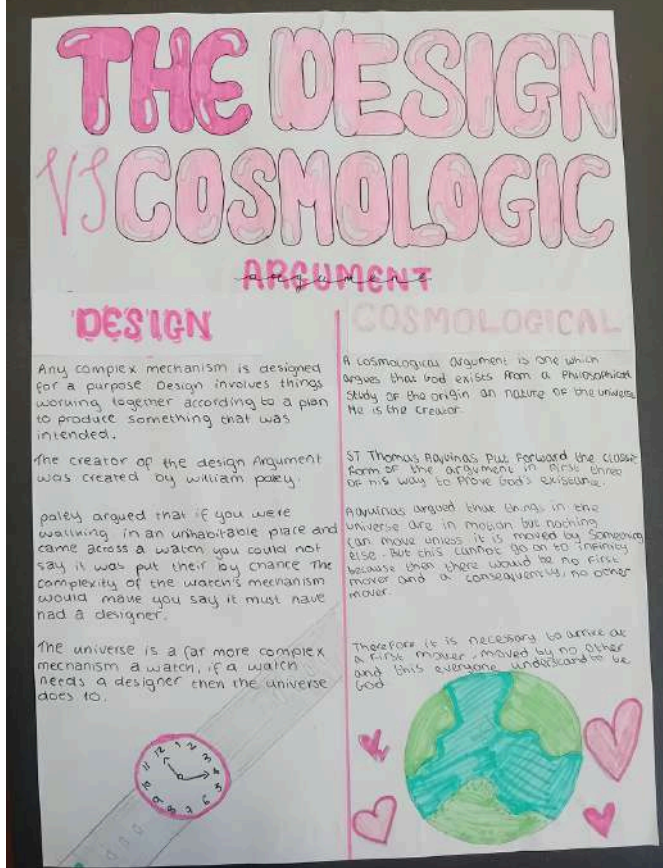 THE DESIGN
VS COSMOLOGIC
ARGUMENT
DESIGN
Any complex mechanism is designed
for a purpose Design involves things
working together according to a plan
to produce something that was
intended.
The creator of the design Argument
was created by william paley.
paley argued that if you were
wallning in an unhabitable place and
came across a watch you could not
say it was put their by chance The
complexity of the watch's mechanism
would make you say it must have
had a designer.
The universe is a far more complex
mechanism a watch, if a watch
needs a designer then the universe
does to.
12 1 2 3 4 5 6 7 8 9 10 11
COSMOLOGICAL
A cosmological argument is one which
argues that God exists from a Philosophical
study of the origin an nature of the universe
He is the creator
ST Thomas Aquinas Put forward the classic
form of the argument in first three
of his way to Prove God's existance.
Aquinas argued that things in the
universe are in motion but nothing
can move unless it is moved by something
else. But this cannot go on to infinity
because then there would be no first
mover and a consequently, no other
mover.
Therefore it is necessary to arrive at
a first mover, moved by no other
and this everyone understand to be
God